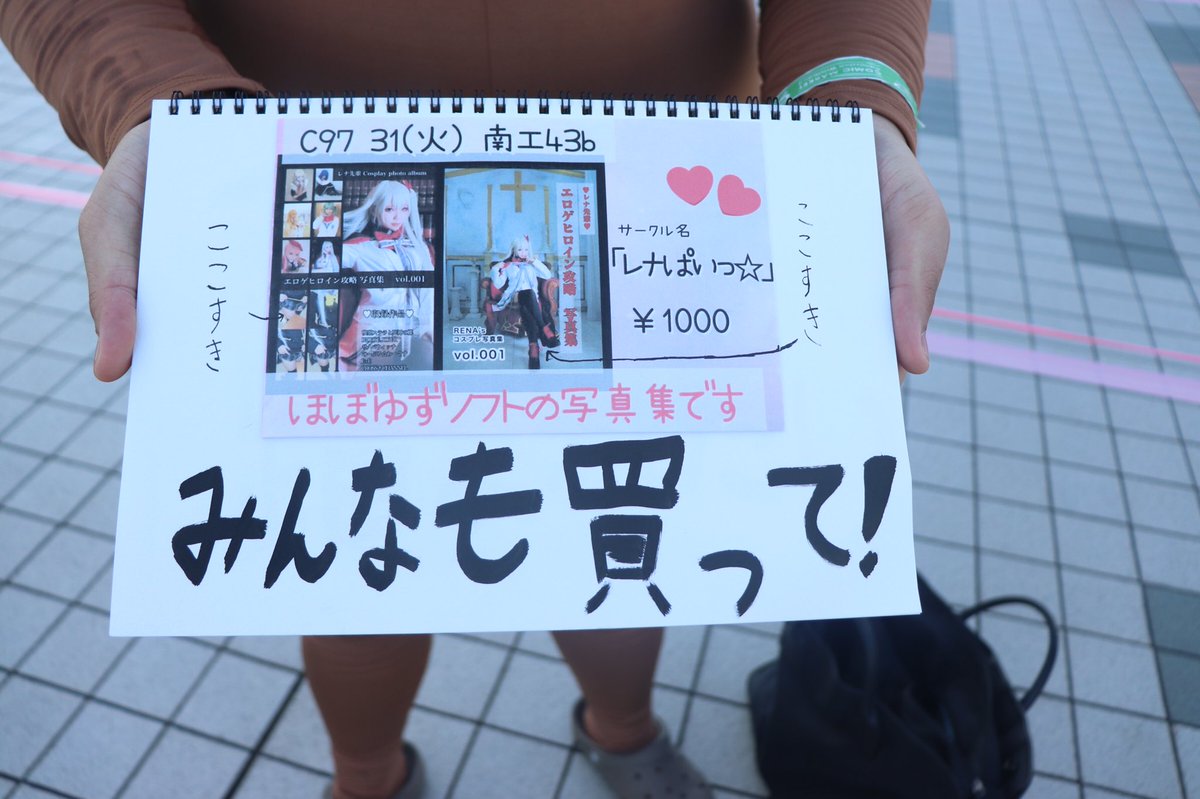 COMIC MARKET
C97 31(火) 南エ43b
レナ先輩 Cosplay photo album
エロゲヒロイン攻略 写真集 vol.001
♡収録作品♡
♥レナ先輩♥
エロゲヒロイン攻略 写真集
RENA's
コスプレ写真集
vol.001
サークル名
「レナぱいっ☆」
¥1000
ここすき
ここすき
ほぼゆずソフトの写真集です
みんなも買って!